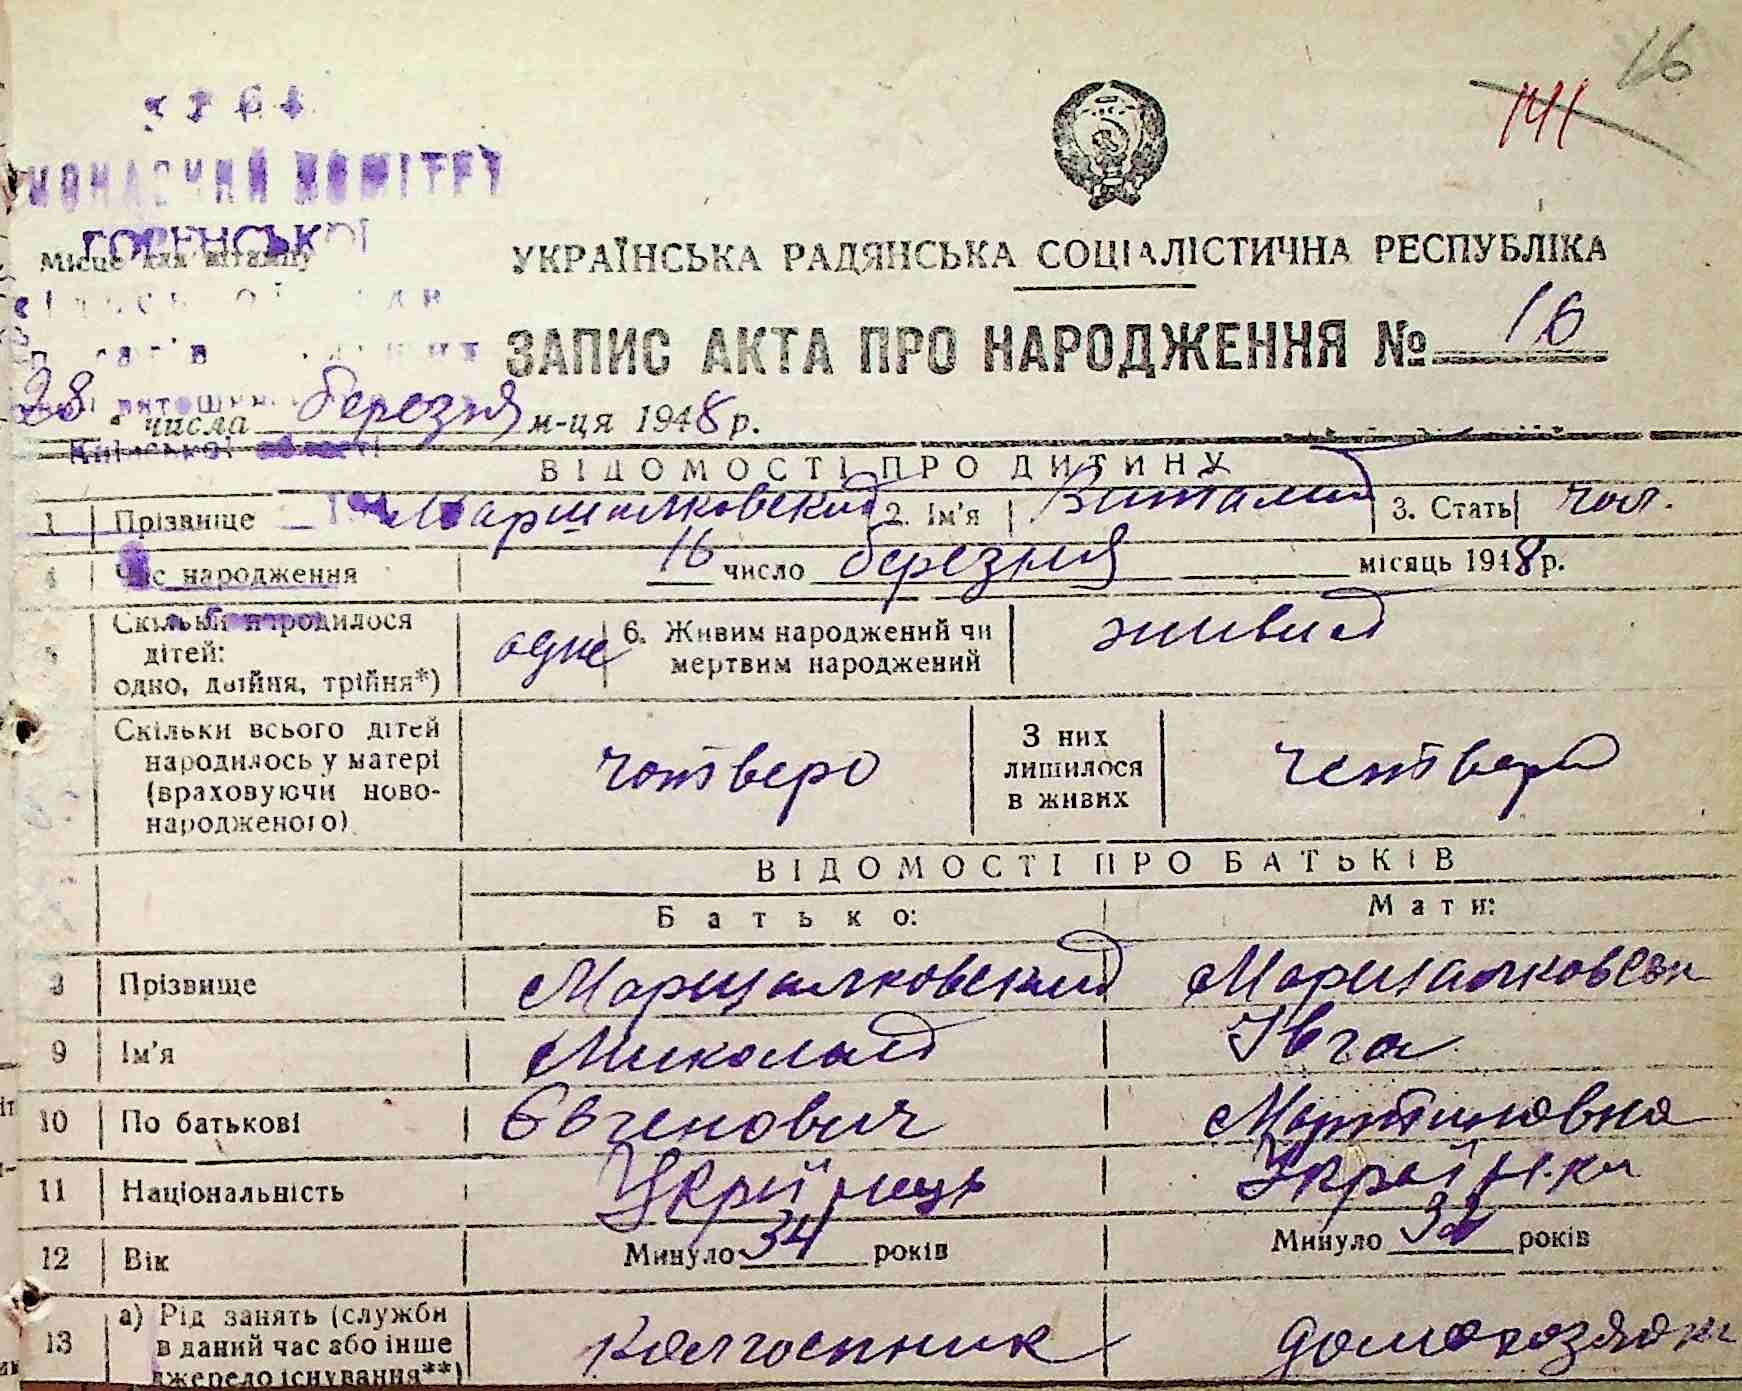 16
141
КОМІТЕТ
ГОРЕНСЬКОЇ
Місце для штампу
УКРАЇНСЬКА РАДЯНСЬКА СОЦІАЛІСТИЧНА РЕСПУБЛІКА
ЗАПИС АКТА ПРО НАРОДЖЕННЯ № 16
28 числа березня м-ця 1948 р.
ВІДОМОСТІ ПРО ДИТИНУ
1 Прізвище Маршалковский 2. Ім'я Виталий 3. Стать чол.
4 Час народження 16 число березня місяць 1948 р.
5 Скільки народилося дітей: одно, двійня, трійня*) одне 6. Живим народжений чи мертвим народжений живий
Скільки всього дітей народилось у матері (враховуючи новонародженого) четверо З них лишилося в живих четверо
ВІДОМОСТІ ПРО БАТЬКІВ
Батько: Мати:
8 Прізвище Маршалковский Маршалковськ
9 Ім'я Миколай Івга
10 По батькові Євгенович Мартиновна
11 Національність Україńець Українка
12 Вік Минуло 34 років Минуло 32 років
13 а) Рід занять (служби в даний час або інше джерело існування**) Колгоспник домохозяйк